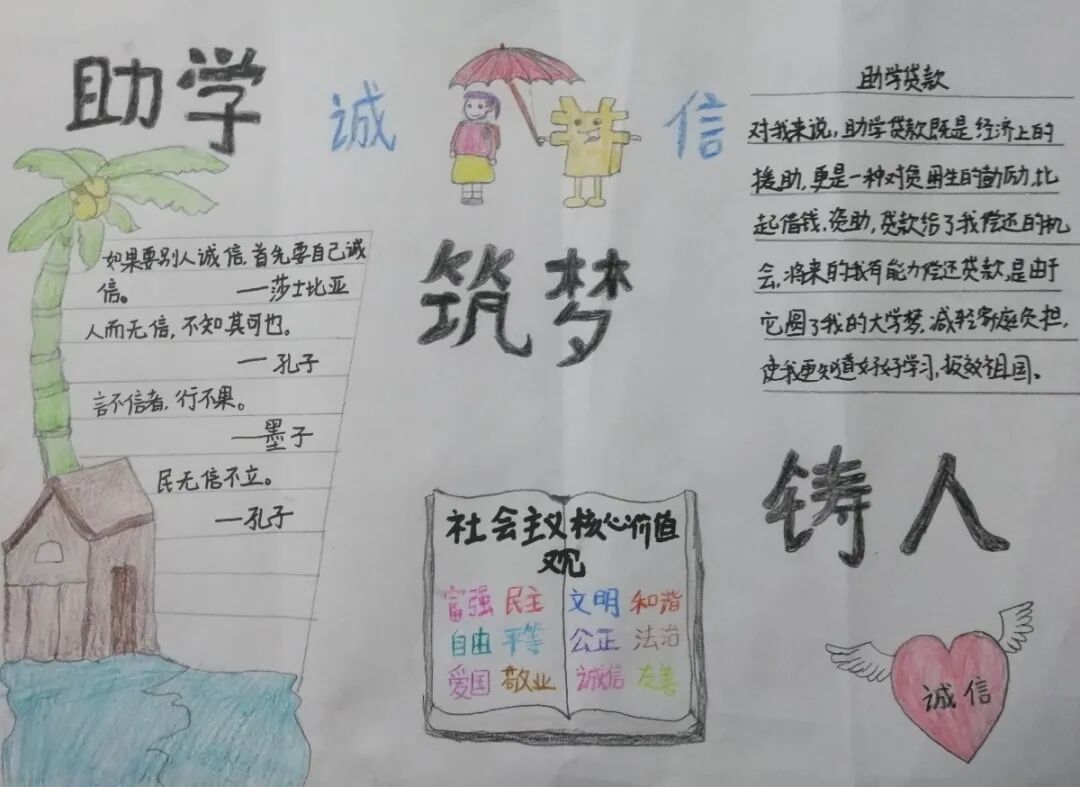 助学
诚 信
筑梦
铸人
如果要别人诚信,首先要自己诚
信。 —莎士比亚
人而无信,不知其可也。
— 孔子
言不信者,行不果。
—墨子
民无信不立。
—孔子
助学贷款
对我来说,助学贷款既是经济上的
援助,更是一种对贫困生的勋励,比
起借钱,资助,贷款给了我偿还的机
会,将来的我有能力偿还贷款,是由于
它圆了我的大学梦,减轻家庭负担,
使我更知道好好学习,报效祖国。
社会主义核心价值
观
富强 民主 文明 和谐
自由 平等 公正 法治
爱国 敬业 诚信 友善
诚信